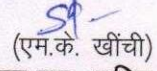 (एम.के. खींची)